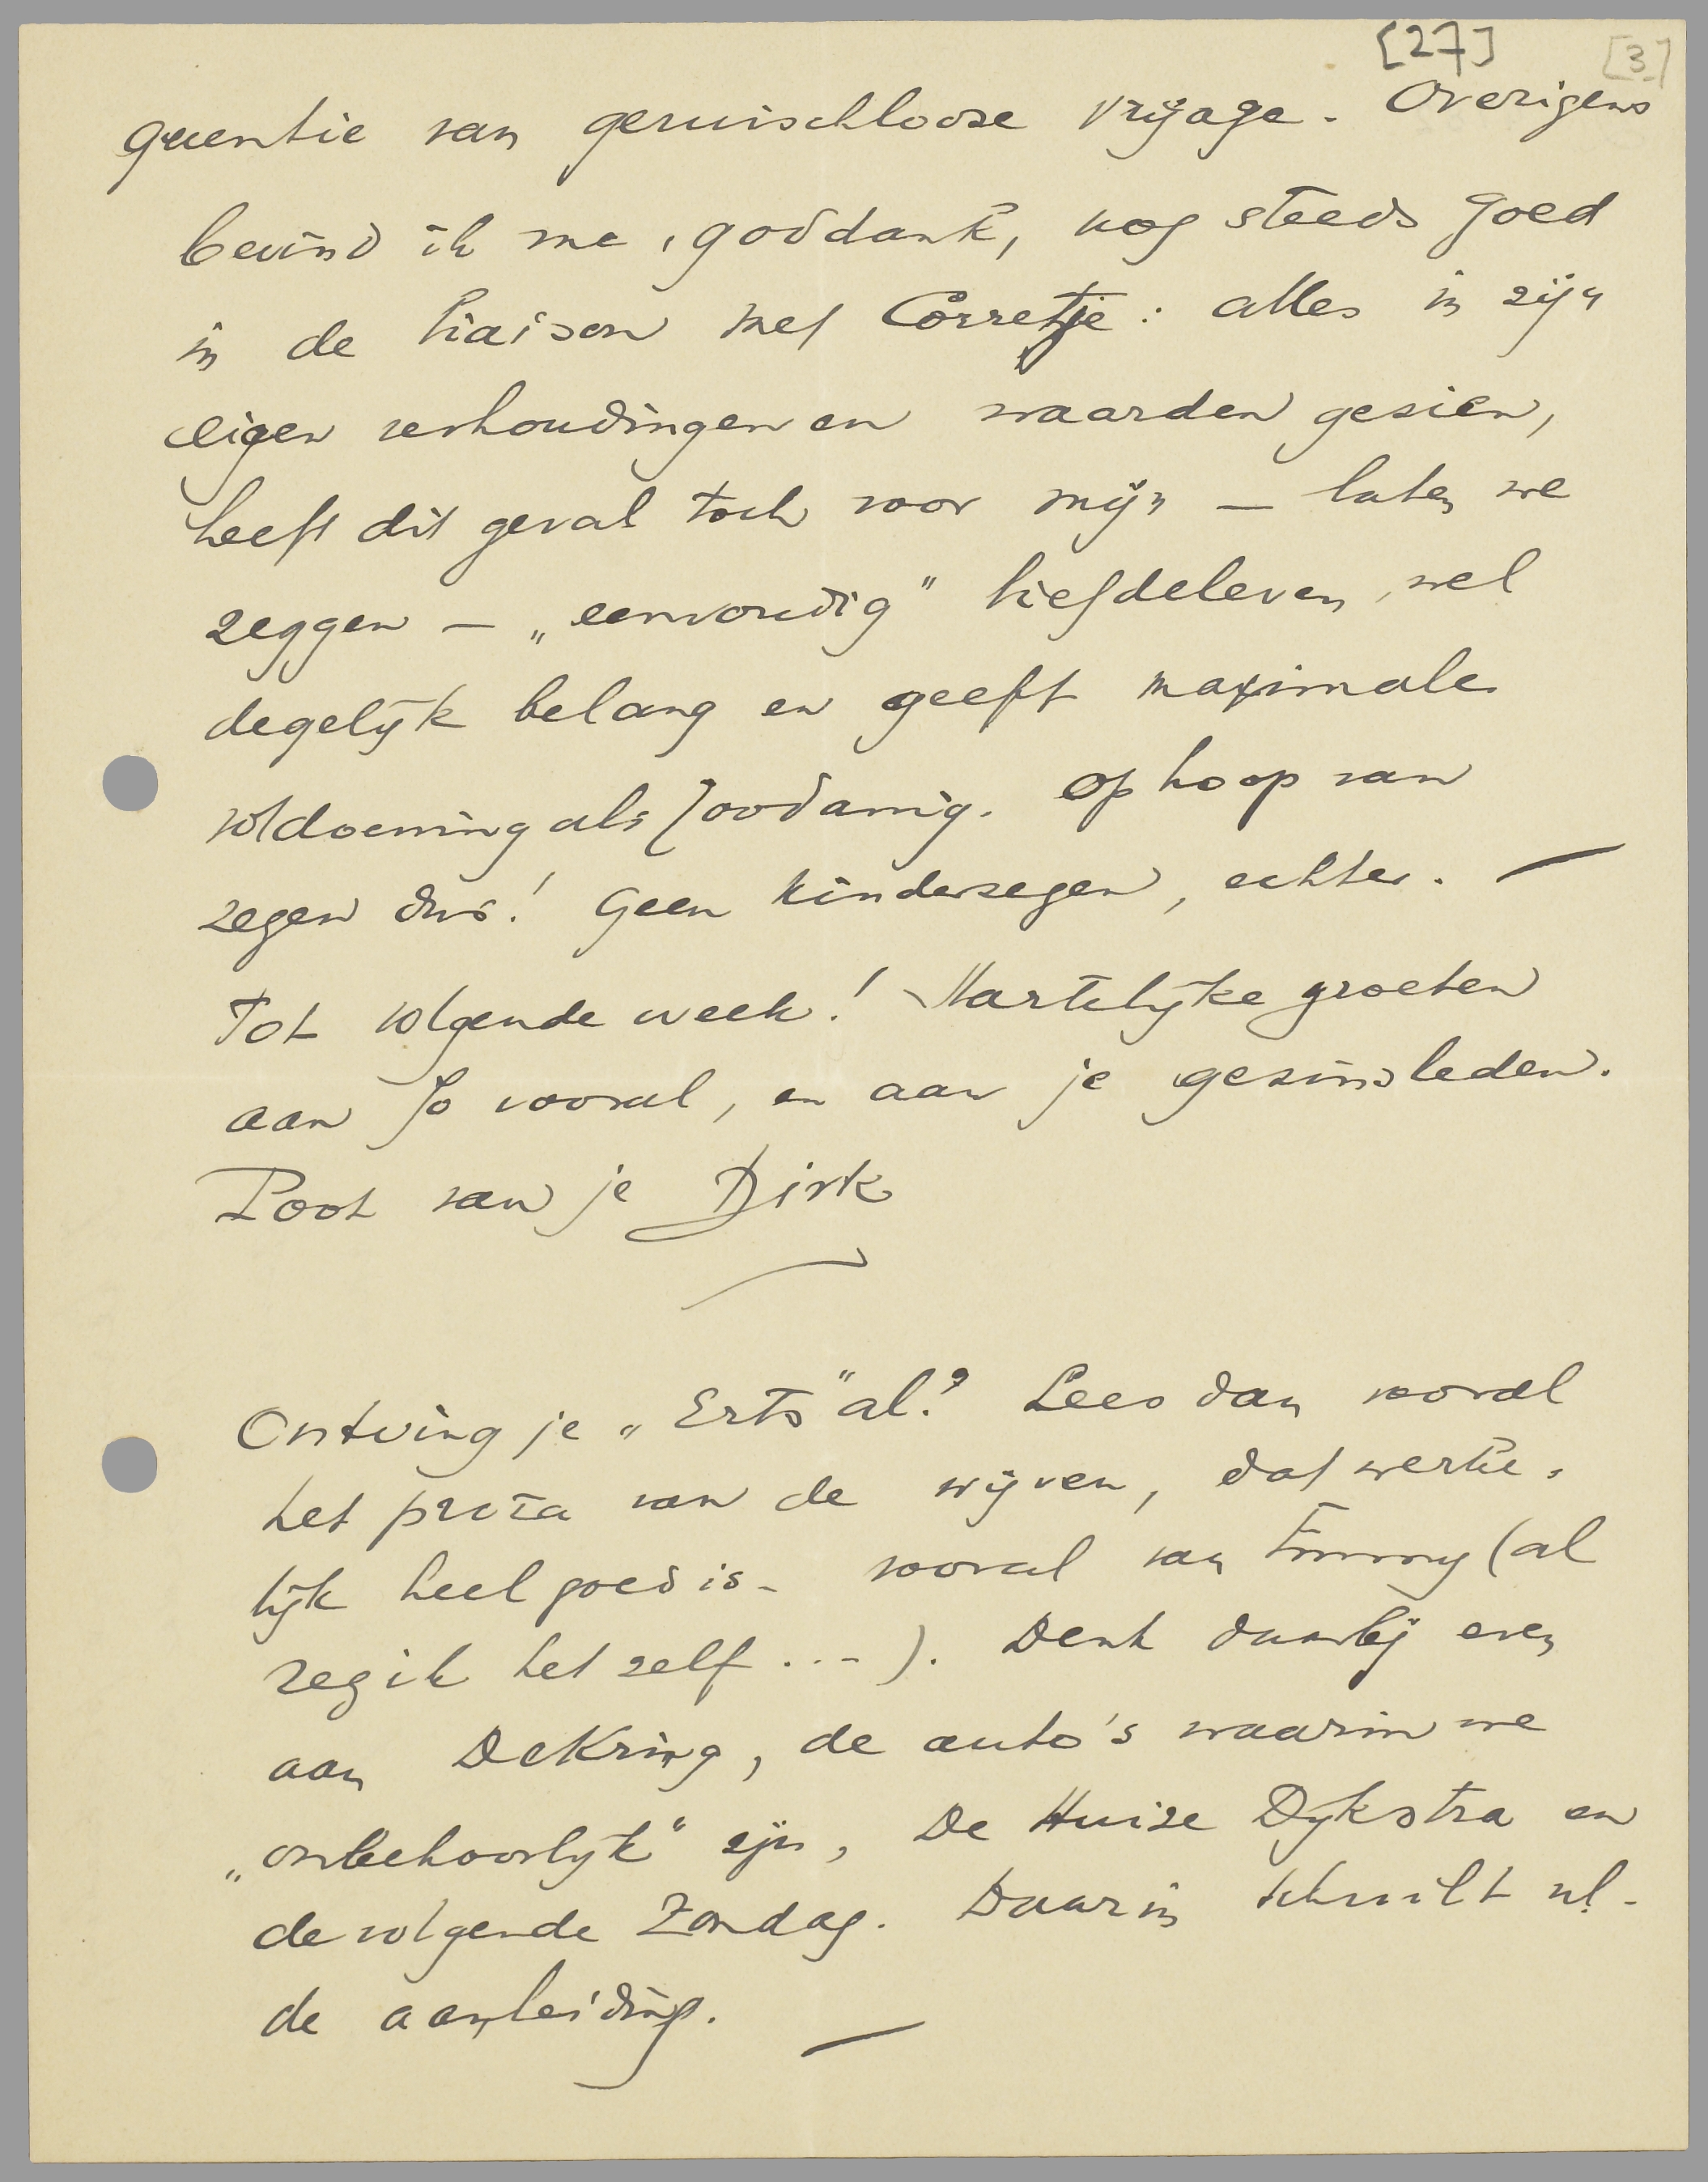 [27] [3]
quentie van geruischlooze vrijage. Overigens
bevind ik me, goddank, nog steeds goed
in de liaison met Corretje: alles in zijn
eigen verhoudingen en waarden gezien,
heeft dit geval toch voor mijn — laten we
zeggen — „eenvoudig" liefdeleven, wel
degelijk belang en geeft maximale
voldoening als zoodanig. Op hoop van
zegen dus! Geen kinderzegen, echter. —
Tot volgende week! Hartelijke groeten
aan Jo vooral, en aan je gezinsleden.
Poot van je Dirk
Ontving je „Erts" al? Lees dan vooral
het proza van de wijven, dat werke-
lijk heel goed is - vooral van Emmy (al
zeg ik het zelf...). Denk daarbij even
aan De Kring, de auto's waarin we
„onbehoorlijk" zijn, De Huize Dijkstra en
de volgende Zondag. Daarin schuilt nl.
de aanleiding. —